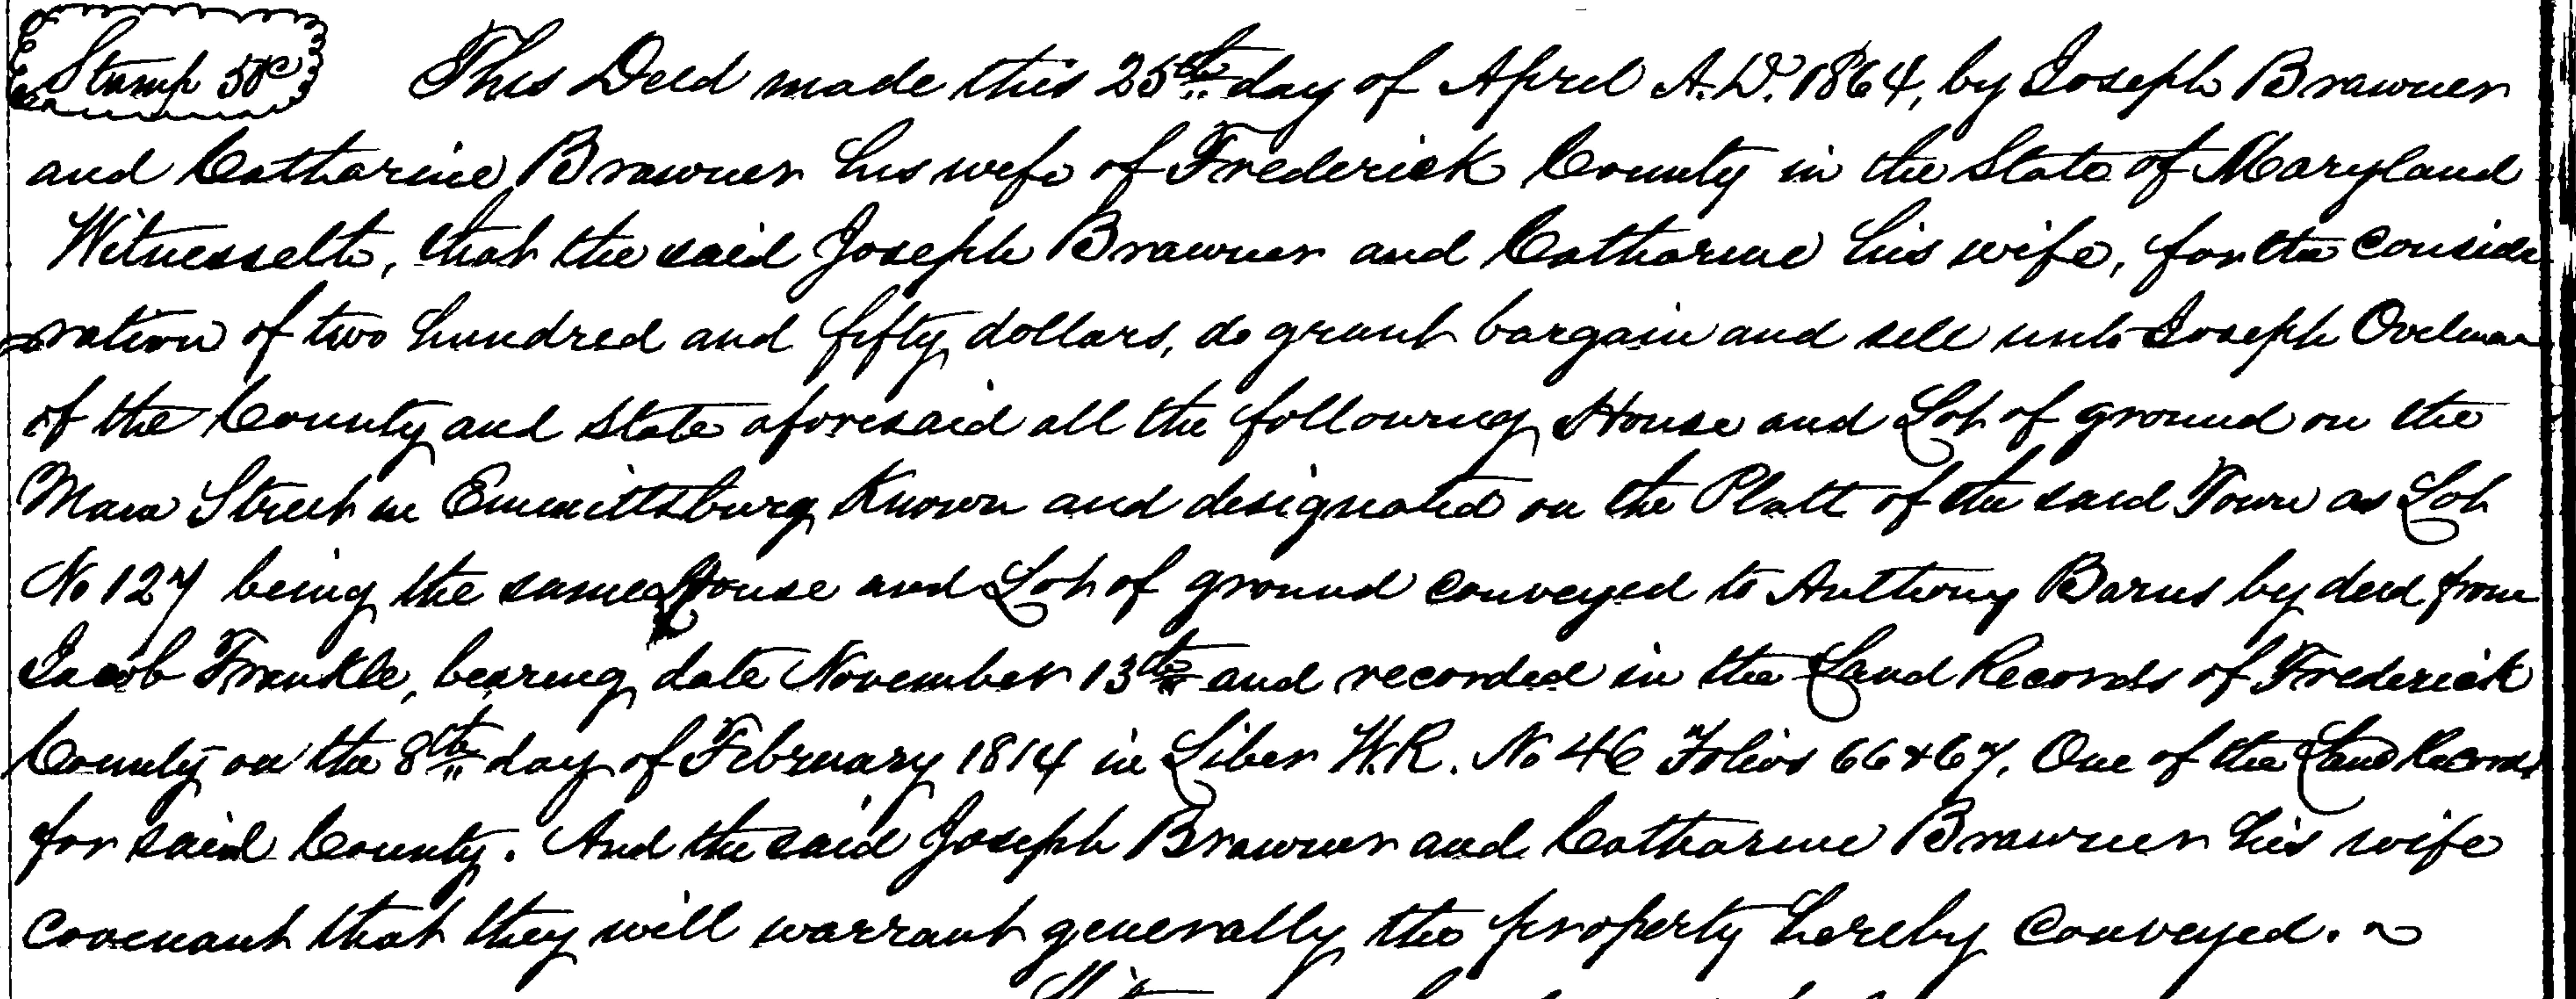 Stamp 50c This Deed made this 25th day of April A.D. 1864, by Joseph Brawner
and Catharine Brawner his wife of Frederick County in the State of Maryland
Witnesseth, that the said Joseph Brawner and Catharine his wife, for the conside
ration of two hundred and fifty dollars, do grant bargain and sell unto Joseph
of the County and State aforesaid all the following House and Lot of ground on the
Main Street in Emmittsburg Known and designated on the Platt of the said Town as Lot
No 127 being the same House and Lot of ground conveyed to Anthony Barns by deed from
Jacob Frankle, bearing date November 13th and recorded in the Land Records of Frederick
County on the 8th day of February 1814 in Liber W.R. No 46 Folios 66 & 67. One of the Land Records
for said County. And the said Joseph Brawner and Catharine Brawner his wife
covenant that they will warrant generally the property hereby conveyed. ~